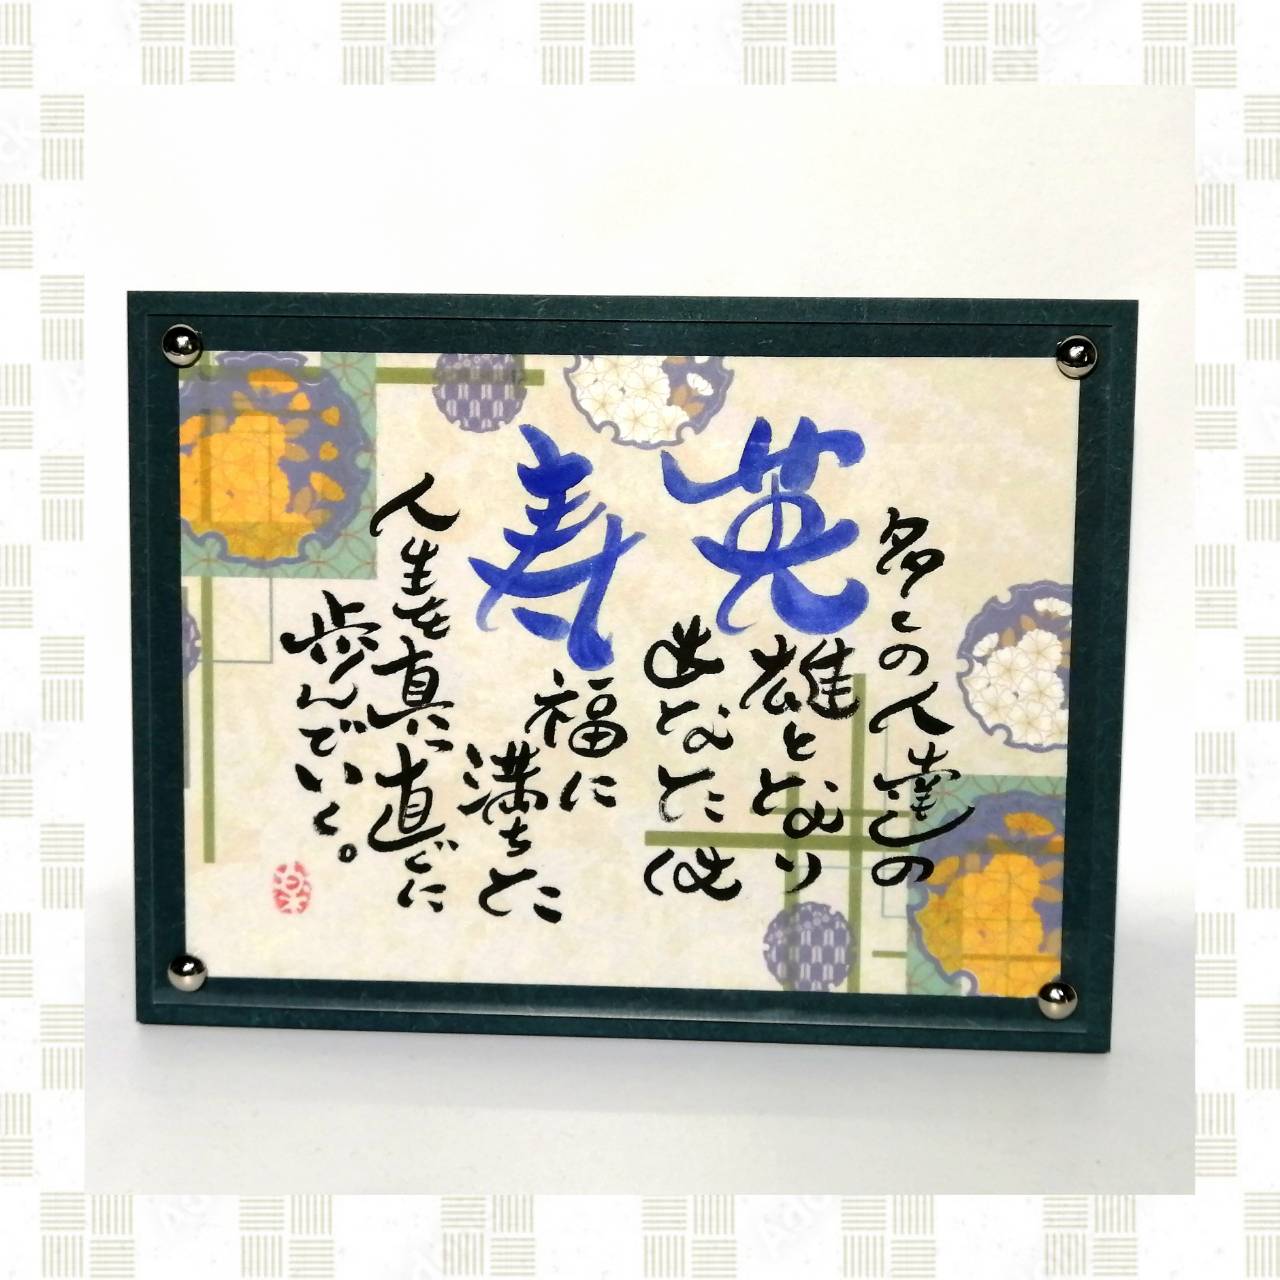 多くの人達の
英雄となり
あなたは
寿福に
満ちた
人生を真っ直ぐに
歩んでいく。